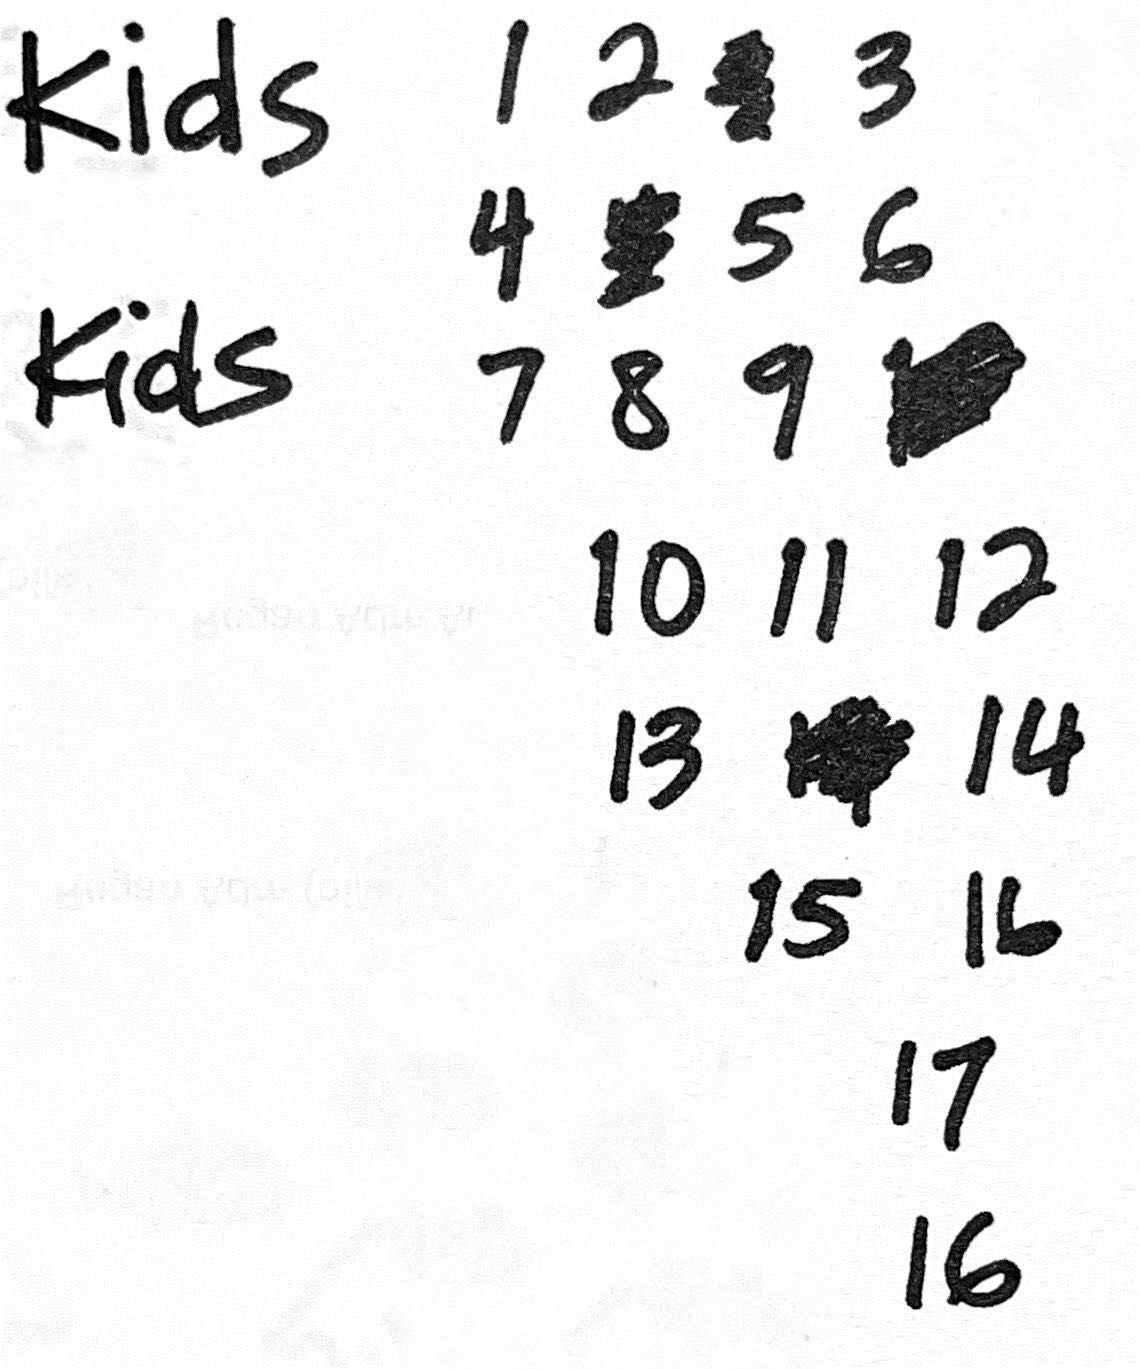 Kids 1 2 3
4 5 6
Kids 7 8 9
10 11 12
13 14
15 16
17
16